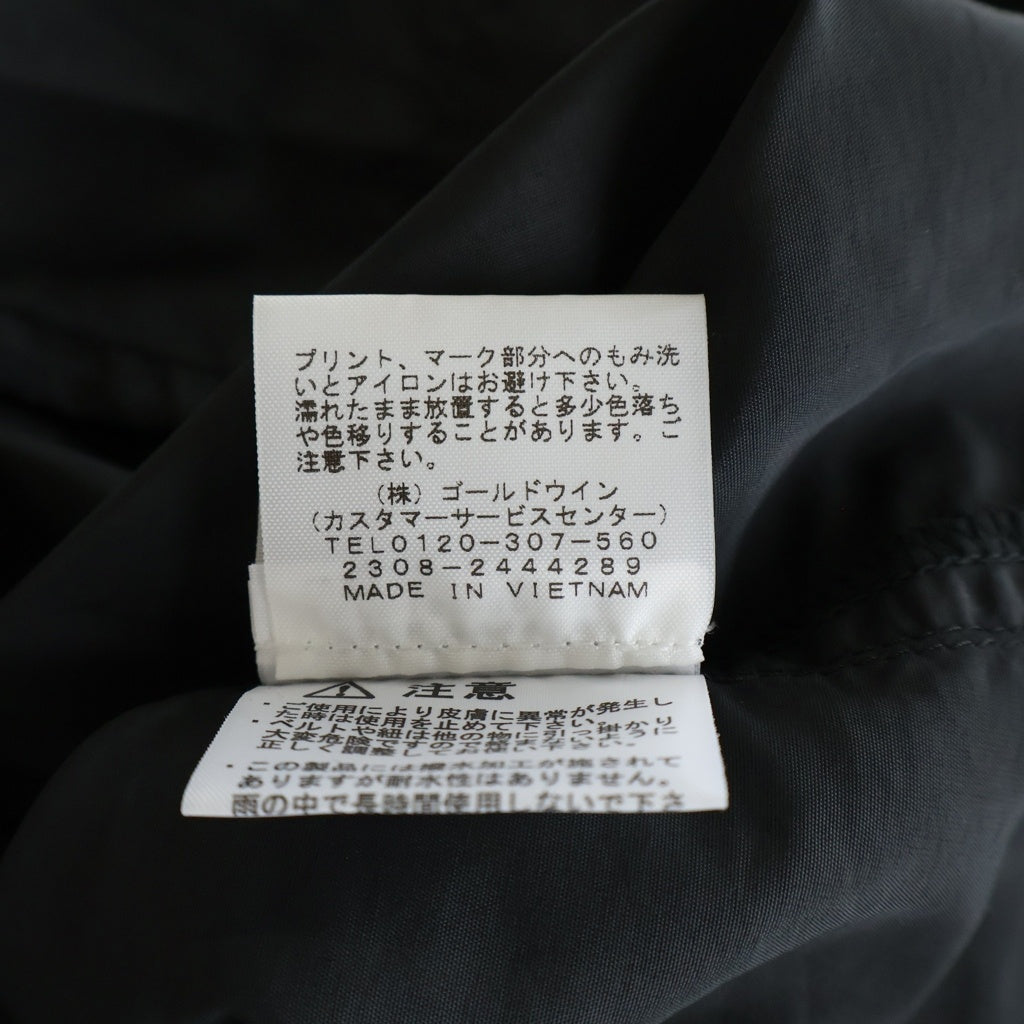 プリント、マーク部分へのもみ洗
いとアイロンはお避け下さい。
濡れたまま放置すると多少色落ち
や色移りすることがあります。ご
注意下さい。
(株)ゴールドウイン
(カスタマーサービスセンター)
TEL0120-307-560
2308-2444289
MADE IN VIETNAM
⚠ 注意
・ご使用により皮膚に異常が発生し
た時は使用を止めて下さい。
・ベルトや紐は他の物に引っ掛かり
大変危険ですので
正しく調整してお使い下さい。
・この製品には撥水加工が施されて
ありますが耐水性はありません。
雨の中で長時間使用しないで下さ